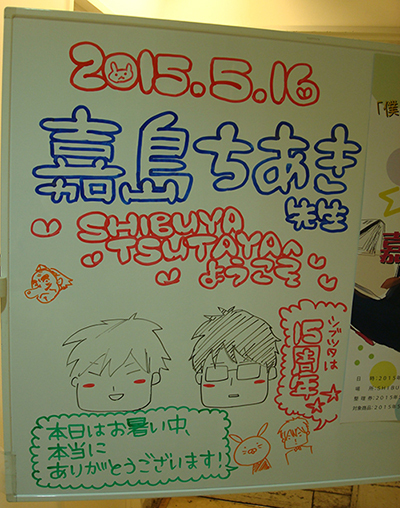 2015.5.16
嘉島ちあき
先生
SHIBUYA
TSUTAYAへ
ようこそ
シブツタは
15周年
本日はお暑い中、
本当に
ありがとうございます!
「僕
嘉